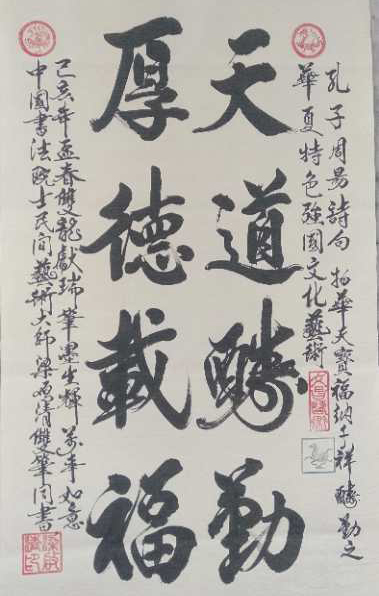 孔子周易詩句 物華天寶福納千祥 酬勤之
華夏特色強國文化藝術
天道酬勤
厚德載福
己亥年孟春雙龍獻瑞筆墨生輝 萬事如意
中國書法院士民间藝術大师梁 清雙筆同書